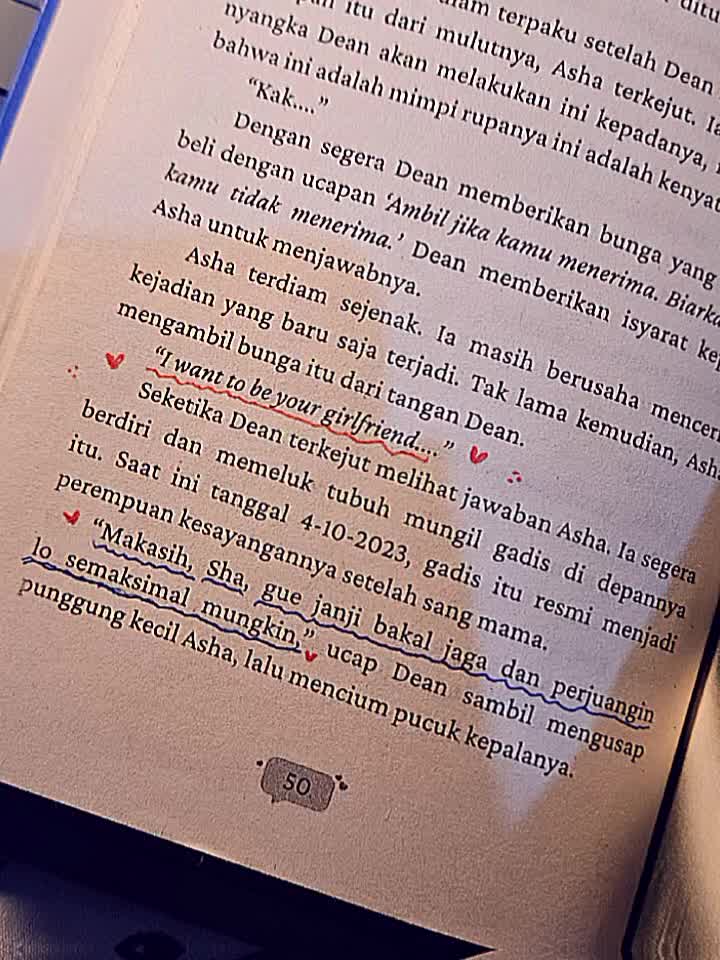 terpaku setelah Dean
itu dari mulutnya, Asha terkejut.
nyangka Dean akan melakukan ini kepadanya,
bahwa ini adalah mimpi rupanya ini adalah
“Kak....”
Dengan segera Dean memberikan bunga yang
beli dengan ucapan ‘Ambil jika kamu menerima.
kamu tidak menerima.’ Dean memberikan isyarat
Asha untuk menjawabnya.
Asha terdiam sejenak. Ia masih berusaha
kejadian yang baru saja terjadi. Tak lama kemudian,
mengambil bunga itu dari tangan Dean.
“I want to be your girlfriend....”
Seketika Dean terkejut melihat jawaban Asha. Ia segera
berdiri dan memeluk tubuh mungil gadis di depannya
itu. Saat ini tanggal 4-10-2023, gadis itu resmi menjadi
perempuan kesayangannya setelah sang mama.
“Makasih, Sha, gue janji bakal jaga dan perjuangin
lo semaksimal mungkin,” ucap Dean sambil mengusap
punggung kecil Asha, lalu mencium pucuk kepalanya.
50